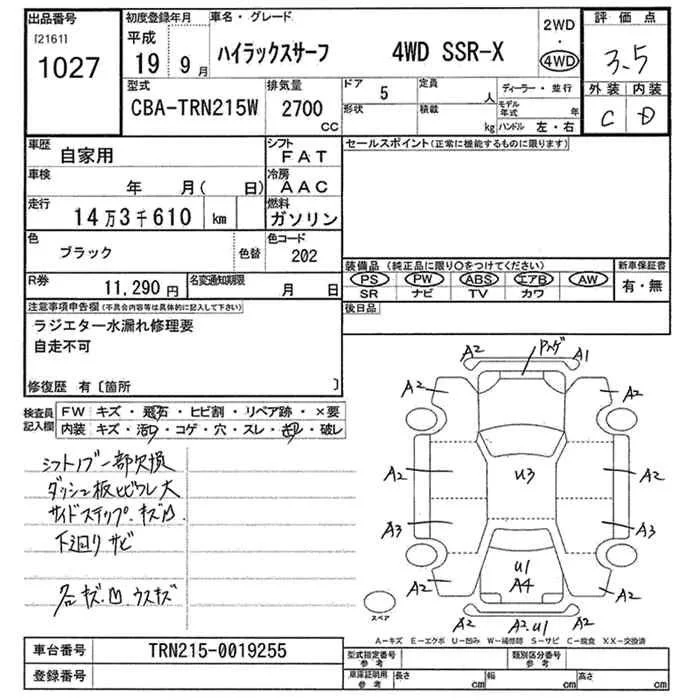 出品番号
[2161]
1027
初度登録年月
平成
19 9月
車名・グレード
ハイラックスサーフ 4WD SSR-X
2WD
・
4WD
評価点
3.5
外装 内装
C D
型式
CBA-TRN215W
排気量
2700
CC
ドア 5
形状
定員 人
積載 kg
ディーラー・並行
モデル年式 年
ハンドル 左・右
車歴 自家用
シフト FAT
車検 年 月( 日)
冷房 AAC
走行 14万3千610 km
燃料 ガソリン
色 ブラック 色替
色コード 202
R券 11,290円
名変通知期限 月 日
セールスポイント(正常に機能するものに限ります)
装備品(純正品に限り〇をつけてください)
新車保証書
PS PW ABS エアB AW
有・無
SR ナビ TV カワ
後日品
注意事項申告欄(不具合内容等は具体的に記入して下さい)
ラジエター水漏れ修理要
自走不可
修復歴 有〔箇所 〕
検査員記入欄
FW キズ・飛石・ヒビ割・リペア跡・×要
内装 キズ・汚・コゲ・穴・スレ・却・破レ
シフトノブ一部欠損
ダッシュ板ヒビワレ大
サイドステップ.キズ凹
下廻りサビ
各キズ.凹 ウスキズ
A2 A1
A2 A2
A2 U3 A2
A3 A3
U1
A4
A2 A2
A2.U1
スペア
A-キズ E-エクボ U-凹み W-補修跡 S-サビ C-腐食 XX-交換済
車台番号 TRN215-0019255
登録番号
型式指定番号 参考
類別区分番号 参考
車庫証明用 参考
長さ cm 幅 cm 高さ cm